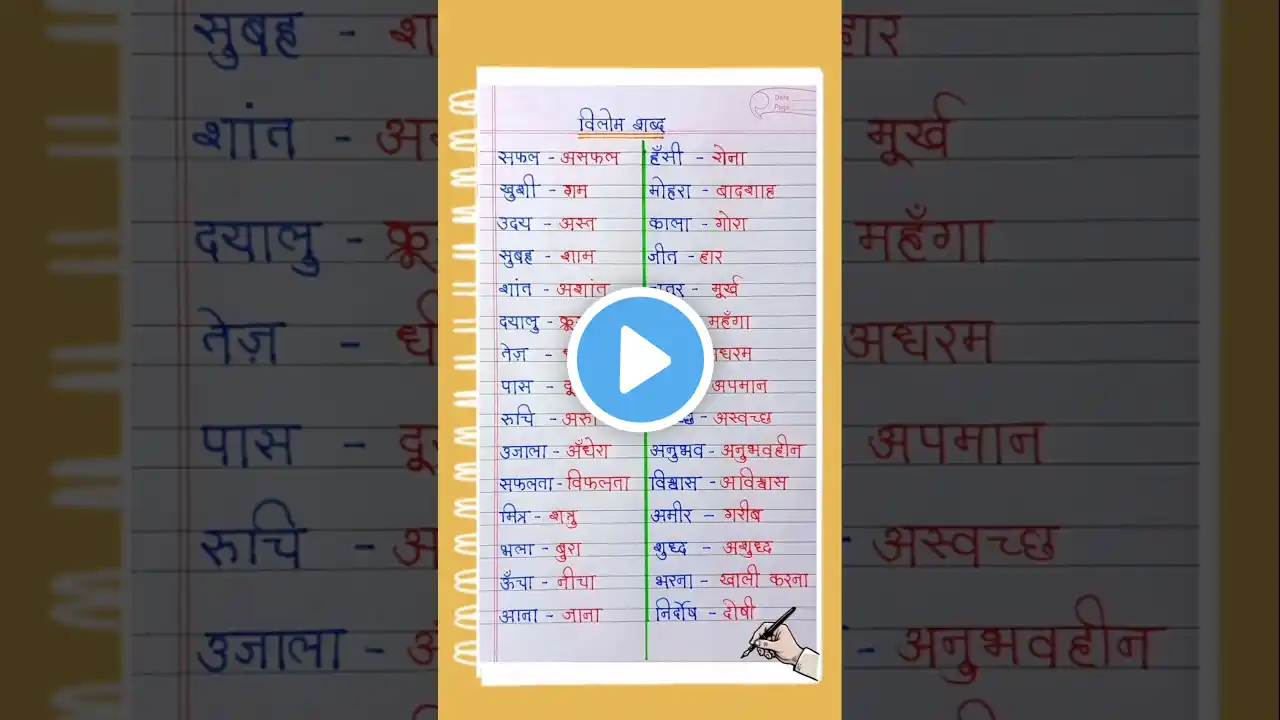 Date
Page
विलोम शब्द
सफल - असफल
खुशी - गम
उदय - अस्त
सुबह - शाम
शांत - अशांत
दयालु -
तेज़ -
पास -
रुचि -
उजाला - अँधेरा
सफलता - विफलता
मित्र - शत्रु
भला - बुरा
ऊँचा - नीचा
आना - जाना
हँसी - रोना
मोहरा - बादशाह
काला - गोरा
जीत - हार
- मूर्ख
महँगा
अधरम
अपमान
- अस्वच्छ
अनुभव - अनुभवहीन
विश्वास - अविश्वास
अमीर - गरीब
शुध्द - अशुध्द
भरना - खाली करना
निर्दोष - दोषी